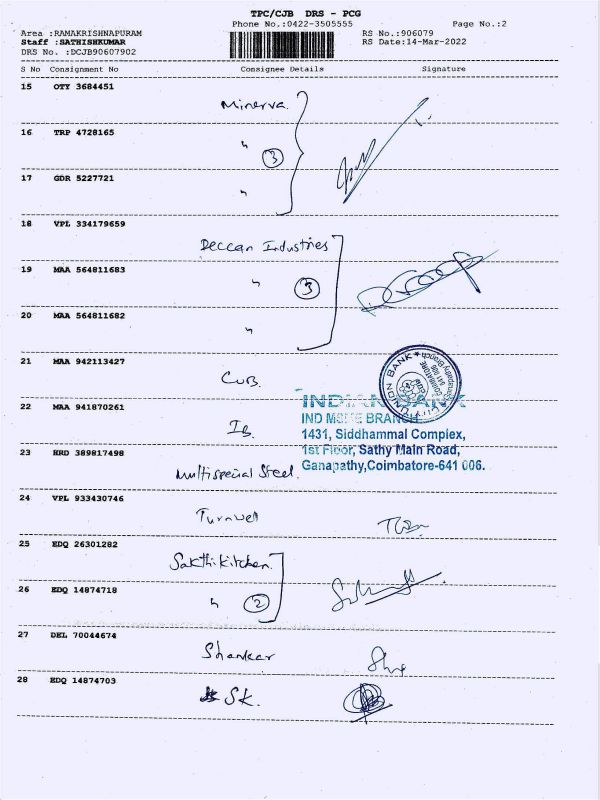 TPC/CJB DRS - PCG
Phone No.:0422-3505555
Page No.:2
Area :RAMAKRISHNAPURAM
RS No.:906079
Staff :SATHISHKUMAR
RS Date:14-Mar-2022
DRS No. :DCJB90607902
S No Consignment No Consignee Details Signature
15 OTY 3684451
Minerva.
16 TRP 4728165
" 3
17 GDR 5227721
"
18 VPL 334179659
Deccan Industries
19 MAA 564811683
" 3
20 MAA 564811682
"
21 MAA 942113427
CUB.
INDIAN BANK
22 MAA 941870261
IND MSME BRANCH
IB.
1431, Siddhammal Complex,
23 HRD 389817498
1st Floor, Sathy Main Road,
Multispecial Steel.
Ganapathy,Coimbatore-641 006.
24 VPL 933430746
Turnwell
25 EDQ 26301282
Sakthi Kitchen.
26 EDQ 14874718
" 2
27 DEL 70044674
Shankar
28 EDQ 14874703
SK.